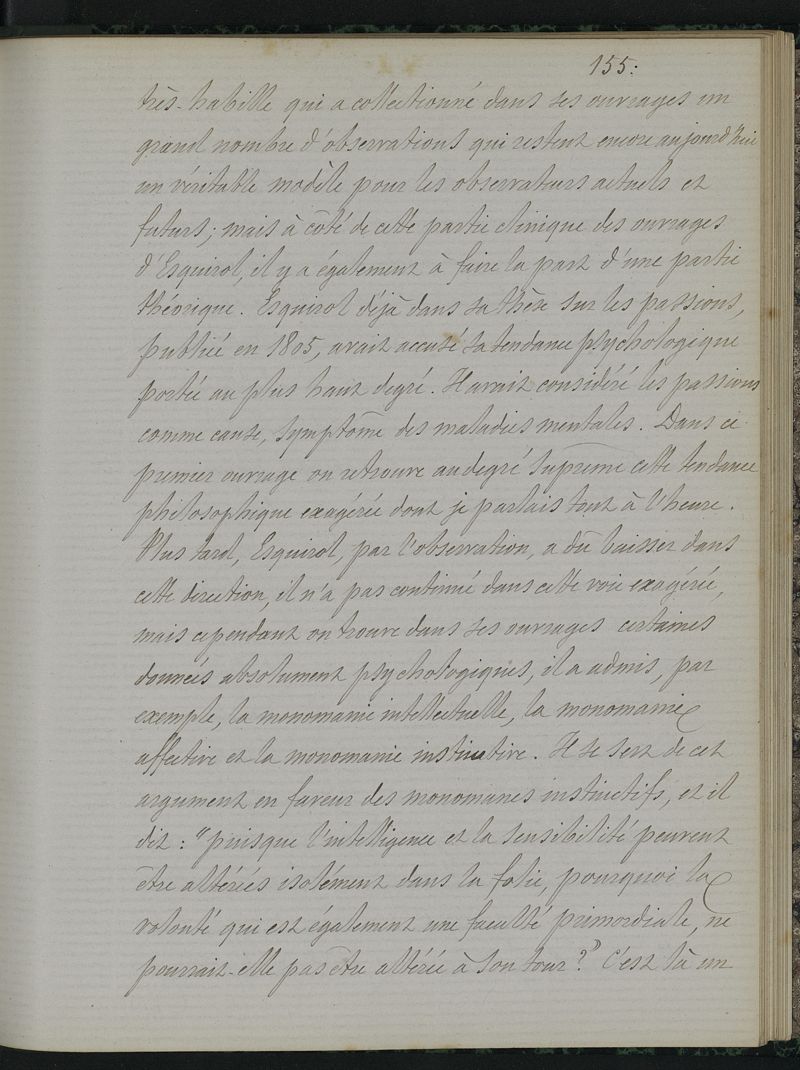 155.
très-habille qui a collectionné dans ses ouvrages un
grand nombre d'observations qui restent encore aujourd'hui
un véritable modèle pour les observateurs actuels et
futurs; mais à côté de cette partie clinique des ouvrages
d'Esquirol, il y a également à faire la part d'une partie
théorique. Esquirol déjà dans sa thèse sur les passions,
publié en 1805, avait accusé sa tendance psychologique
portée au plus haut degré. Il avait considéré les passions
comme cause, symptôme des maladies mentales. Dans ce
premier ouvrage on retrouve au degré suprême cette tendance
philosophique exagérée dont je parlais tout à l'heure.
Plus tard, Esquirol, par l'observation, a dû baisser dans
cette direction, il n'a pas continué dans cette voie exagérée,
mais cependant on trouve dans ses ouvrages certaines
données absolument psychologiques, il a admis, par
exemple, la monomanie intellectuelle, la monomanie
affective et la monomanie instinctive. Il se sert de cet
argument en faveur des monomanes instinctifs, et il
dit : "puisque l'intelligence et la sensibilité peuvent
être altérées isolément dans la folie, pourquoi la
volonté qui est également une faculté primordiale, ne
pourrait-elle pas être altérée à son tour ?" C'est là un